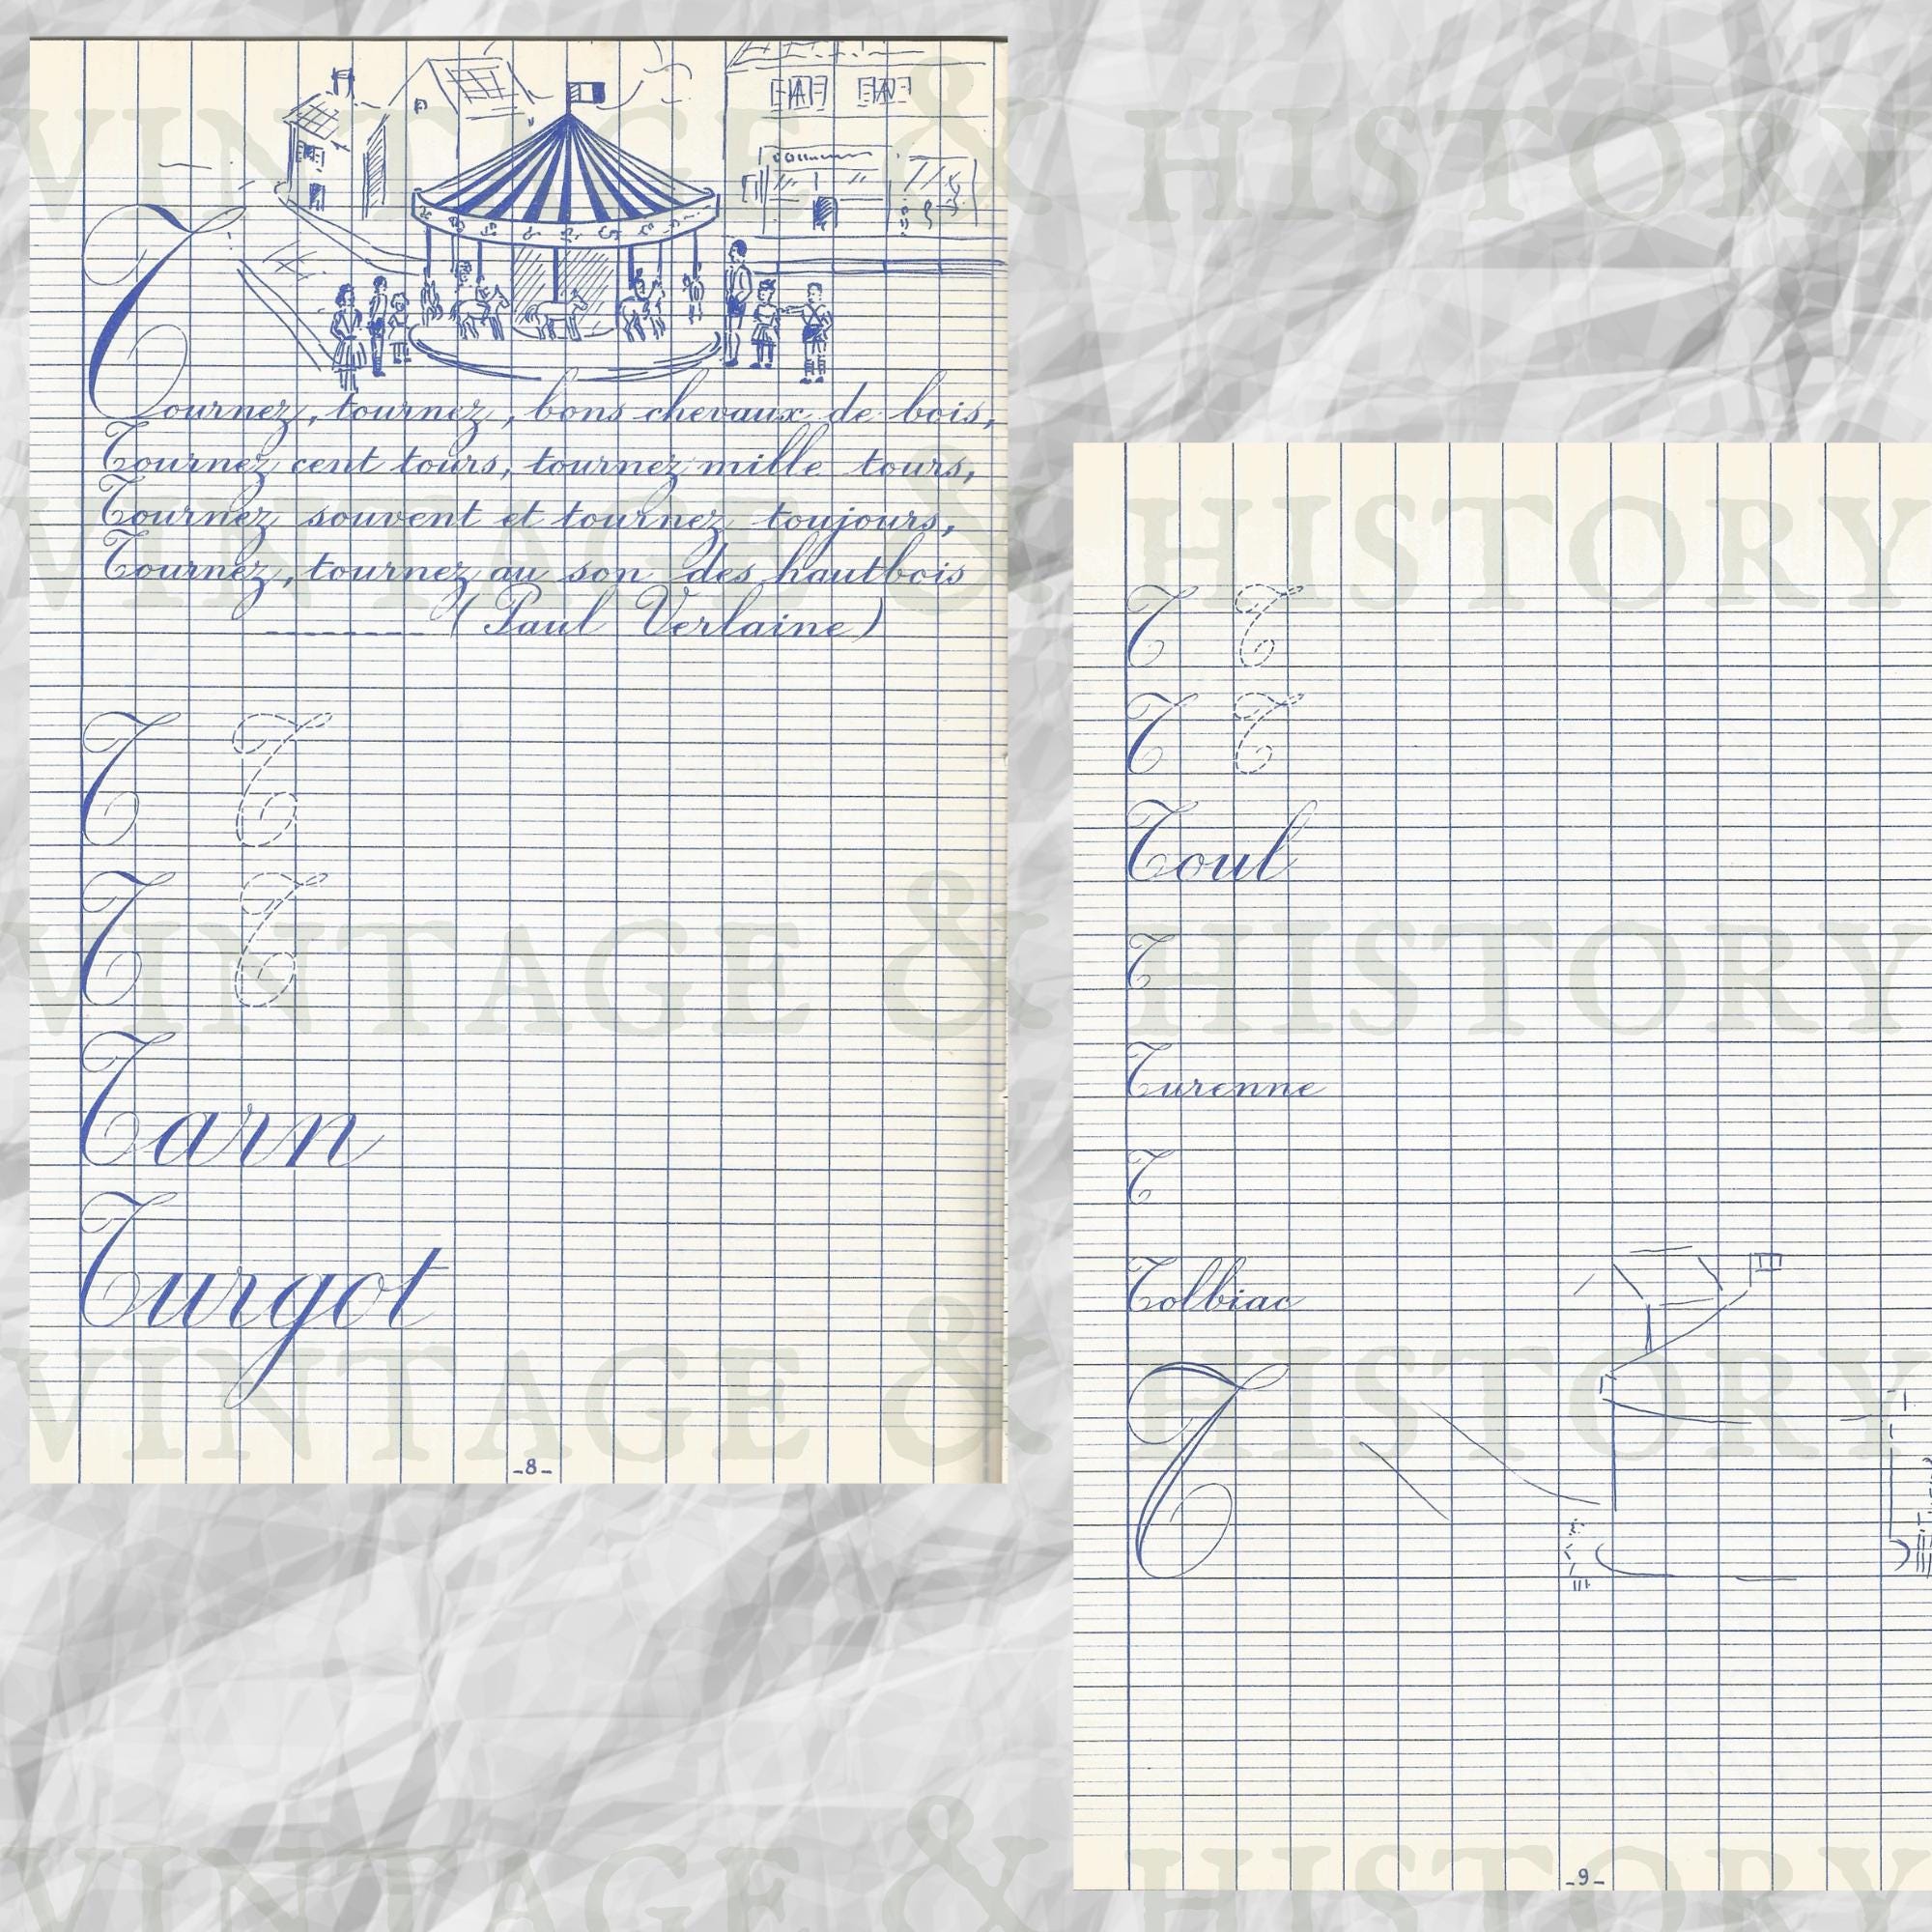 Tournez, tournez, bons chevaux de bois,
Tournez cent tours, tournez mille tours,
Tournez souvent et tournez toujours,
Tournez, tournez au son des hautbois
-------- (Paul Verlaine)
T T
T T
Tarn
Turgot
-8-
T T
T T
Toul
T
Turenne
T
Tolbiac
T
-9-
VINTAGE & HISTORY
VINTAGE & HISTORY
VINTAGE & HISTORY
VINTAGE & HISTORY
VINTAGE & HISTORY